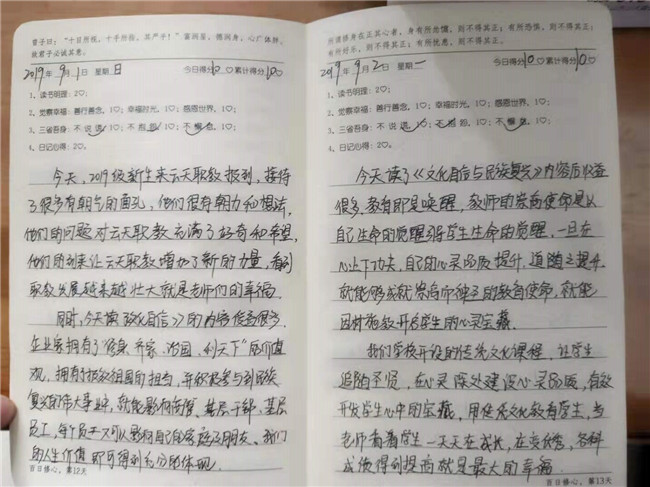 曾子曰：“十目所视，十手所指，其严乎！”富润屋，德润身，心广体胖，
故君子必诚其意。
2019年9月1日 星期日 今日得分10♡累计得分10♡
1、读书明理：2♡；
2、觉察幸福：善行善念，1♡；幸福时光，1♡；感恩世界，1♡；
3、三省吾身：不说谎，1♡；不抱怨，1♡；不懈怠，1♡；
4、日记心得：2♡。
今天，2019级新生来云天职教报到，接待
了很多有朝气的面孔，他们很有朝力和想法，
他们的问题对云天职教充满了好奇和希望，
他们的到来让云天职教增加了新的力量，看到
职教发展越来越壮大就是老师们的幸福。
同时，今天读《文化自信》的内容佷多很多，
企业家拥有了“修身、齐家、治国、利天下”的价值
观，拥有报效祖国的担当，并积极参与到民族
复兴的伟大事业中，就能影响高管、基层干部、基层
员工，每个员工又可以影响自己的家庭及朋友、我们
的人生价值即可得到充分的体现。
百日修心，第12天
所谓修身在正其心者，身有所忿懥，则不得其正；有所恐惧，则不得其正；
有所好乐，则不得其正；有所忧患，则不得其正。
2019年9月2日 星期一 今日得分10♡累计得分10♡
1、读书明理：2♡；
2、觉察幸福：善行善念，1♡；幸福时光，1♡；感恩世界，1♡；
3、三省吾身：不说谎，1♡；不抱怨，1♡；不懈怠，1♡；
4、日记心得：2♡。
今天读了《文化自信与民族复兴》内容后收益
很多，教育即是唤醒，教师的崇高使命是以
自己生命的觉醒引得学生生命的觉醒，一旦在
心上下功夫，自己的心灵品质提升，追随之提升
就能够成就崇高而神圣的教育使命，就能
因材施教开启学生的心灵宝藏。
我们学校开设的传统文化课程，让学生
追随圣贤，在心灵深处建设心灵品质，有效
开发学生心中的宝藏，用传统文化教育学生，当
老师看着学生一天天在成长，在变优秀，各科
成绩得到提高就是最大的幸福。
百日修心，第13天